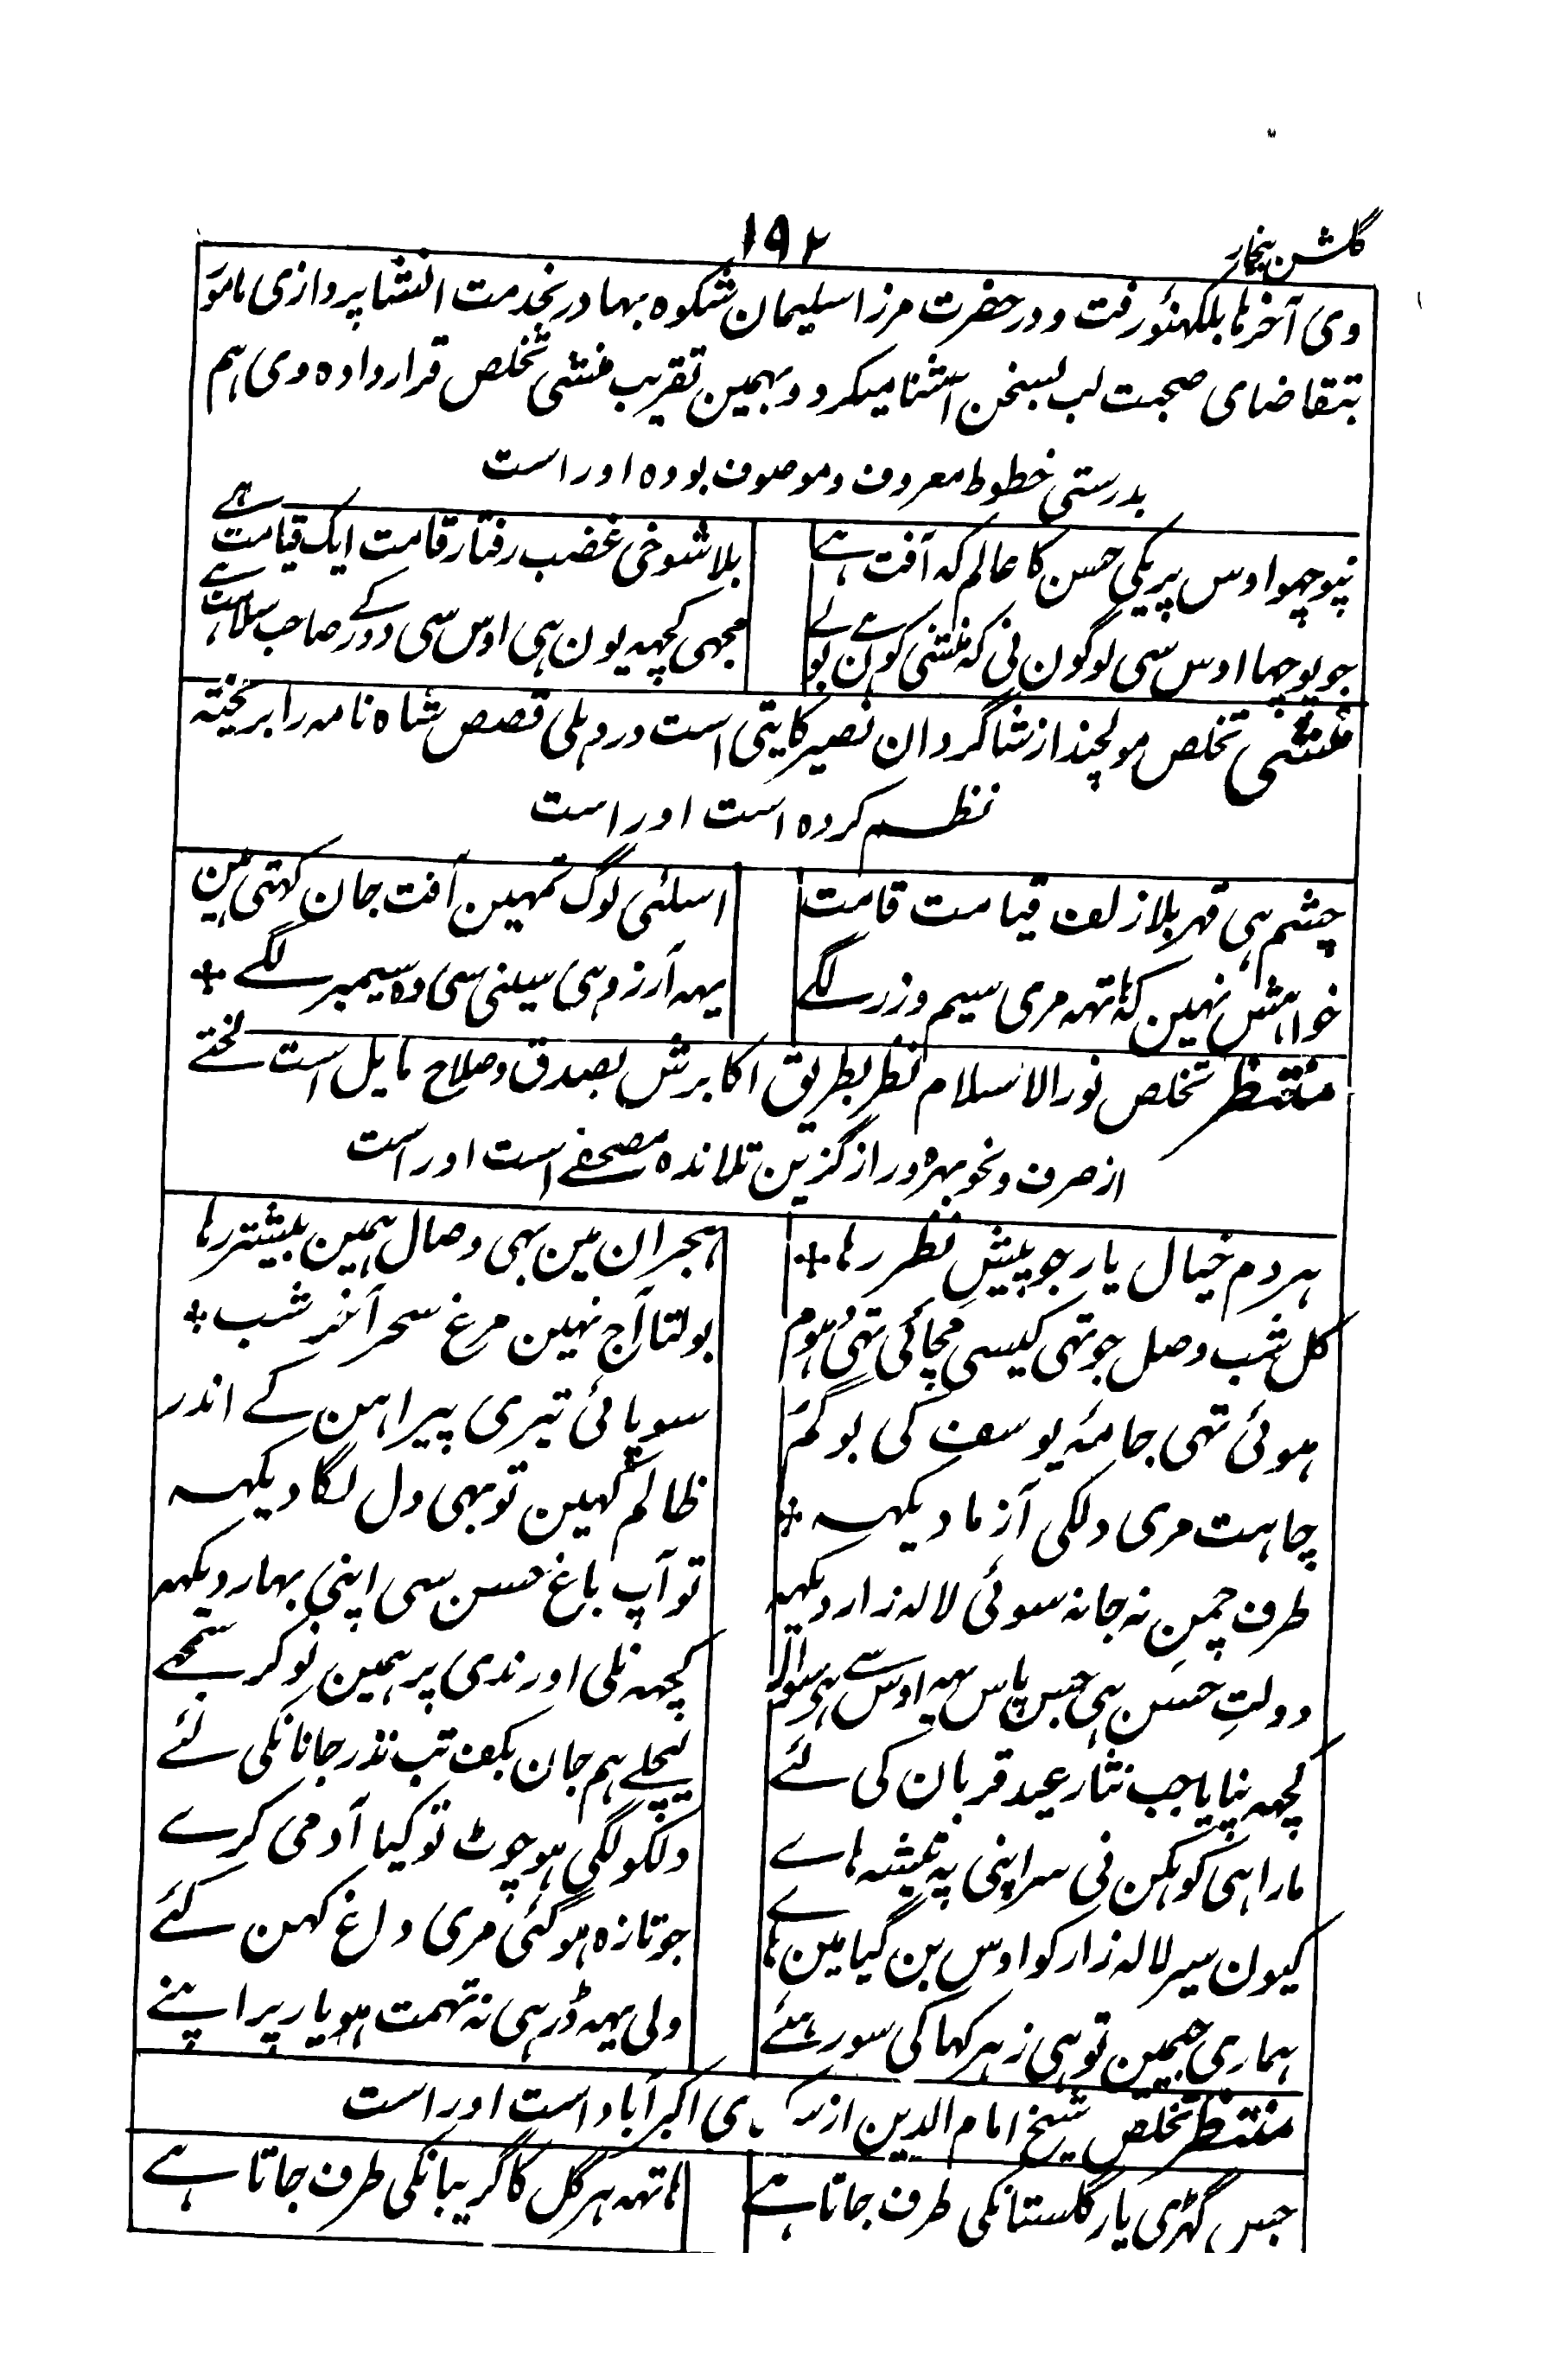 گلشن بیخار
۱۹۲
وی آخرہا بلکہنؤ رفت و در حضرت مرزا سلیمان شکوہ بہادر بخدمت انشا پردازی مامور
بتقاضای صحبت لب بسخن آشنا میکرد و بہمین تقریب منشی تخلص قرار دادہ وی ہم
بدرستی خطوط معروف و موصوف بودہ او راست
نپوچہو اوس پریکی حسن کا عالم کہ آفت ہے
بلا شوخی غضب رفتار قامت ایک قیامت ہے
جو پوچہا اوس سی لوگون نی کہ منشی کون ہے بولے
مجھی کچہہ یون ہی اوس سی دور کے صاحب سلامت ہے
منشی تخلص مولچند از شاگردان نصیر کایتی است در دہلی قصص شاہ نامہ را بریختہ
نظم کردہ است او راست
چشم ہی قہر بلا زلف قیامت قامت
اسلئی لوگ تمہین آفت جان کہتی ہین
خواہش نہین کہ ہاتہہ مری سیم و زر لگے
یہہ آرزو ہی سینی سی وہ سیمبر لگے
منتظر تخلص نور الاسلام نظر بطریق اکابرش بصدق و صلاح مایل است لختے
از صرف و نحو بہرہ ور از گزین تلامذہ مصحفے است او راست
ہردم خیال یار جو پیشِ نظر رہا
ہجران مین بہی وصال ہمین بیشتر رہا
کل شب وصل جو تہی کیسی مچائی تہی دہوم
بولتا آج نہین مرغ سحر آخر شب
ہوئی تہی جامۂ یوسف کی بو گم
سو پائی تیری پیراہن کے اندر
چاہت مری دلکی آزما دیکہہ
ظالم کہین تو بہی دل لگا دیکہہ
طرف چمن نہ جا نہ سوئی لالہ زار دیکہہ
تو آپ باغ حسن سی اپنی بہار دیکہہ
دولتِ حسن ہی جس پاس یہہ اوس سے ہی سوال
کچہہ نلی اور ندی پر ہمین نوکر سمجھے
کچہہ نپایا جب نثار عید قربان کی لئے
لیچلے ہم جان بکف تب نذر جانانکی لئے
مارا ہی کوہکن نی سر اپنی پہ تیشہ ہاے
دلکو لگی ہو چوٹ تو کیا آدمی کرے
کیون سیر لالہ زار کو اوس بن گیا مین ہاے
جو تازہ ہو گئی مری داغ کہن کئے
ہماری جیمین تو ہی زہر کہا کی سو رہئے
ولی یہہ ڈر ہی نہ تہمت ہو یار پر اپنے
منتظر تخلص شیخ امام الدین از اکبرآباد است او راست
جس گہڑی یار گلستانکی طرف جاتا ہے
ہاتہہ ہر گل کا گریبانکی طرف جاتا ہے